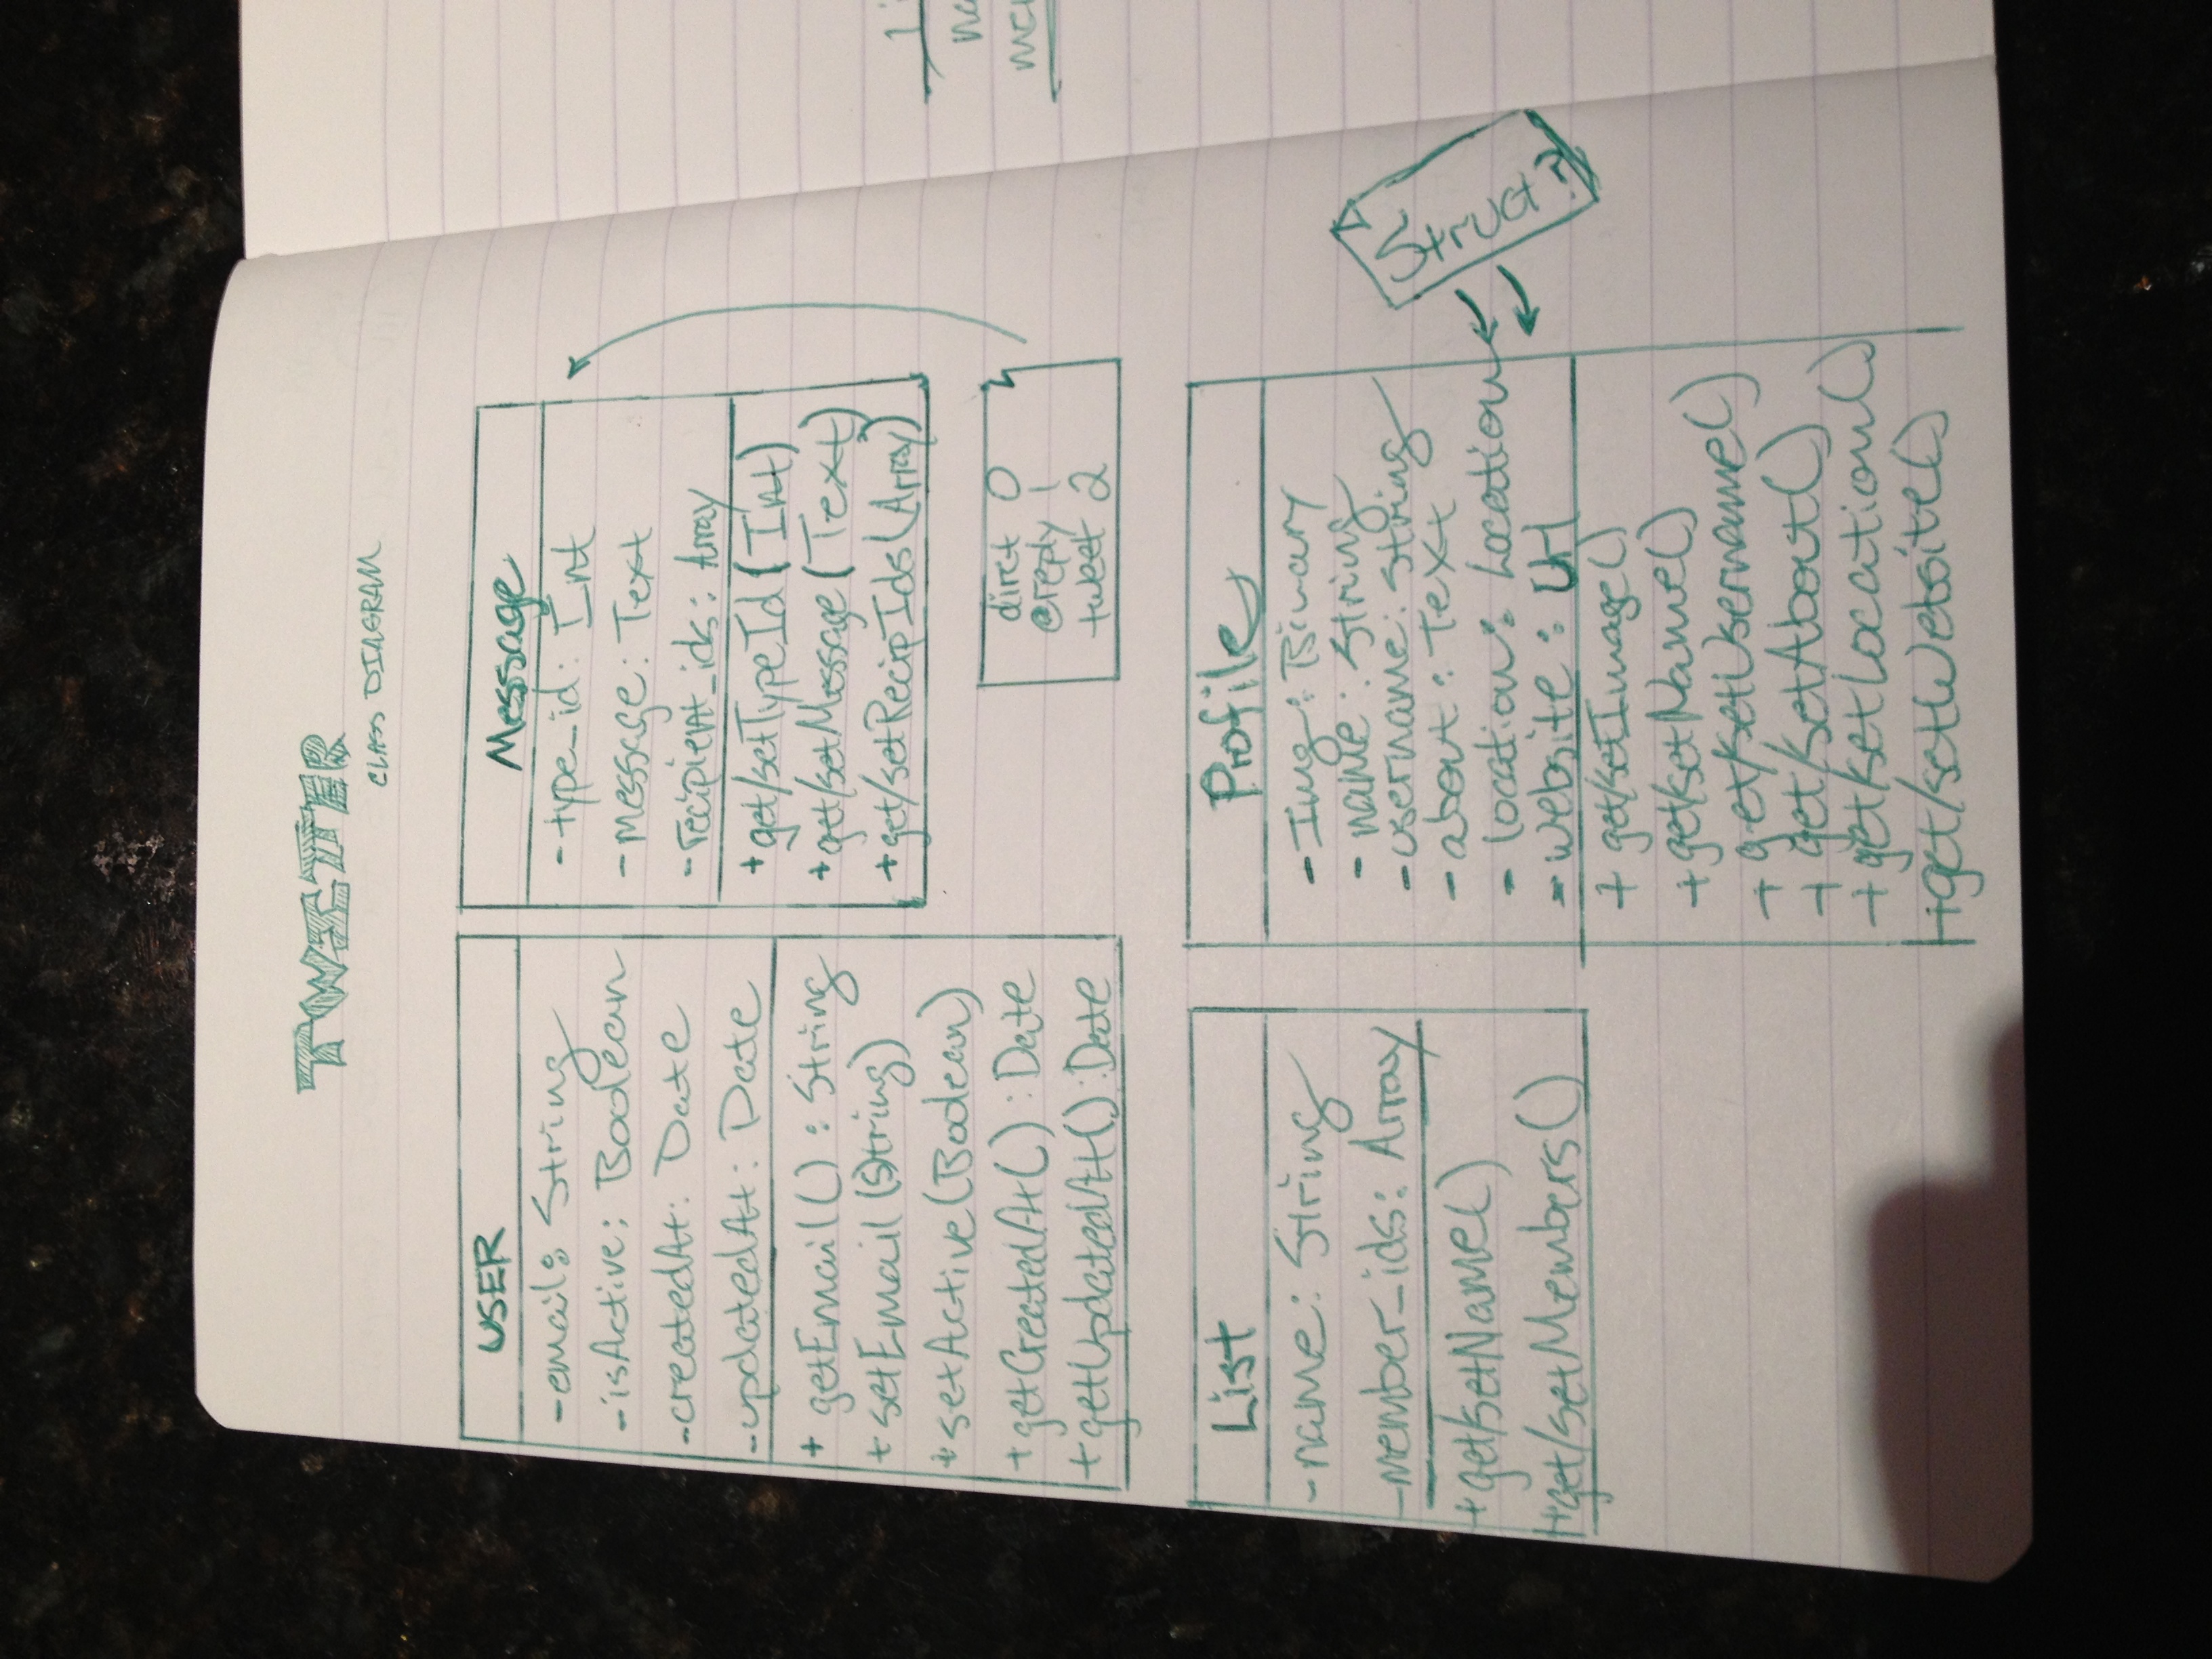 TWITTER
CLASS DIAGRAM
USER
- email: String
- isActive: Boolean
- createdAt: Date
- updatedAt: Date
+ getEmail() : String
+ setEmail (String)
+ setActive (Boolean)
+ getCreatedAt() : Date
+ getUpdatedAt() : Date
Message
- type_id: Int
- message: Text
- recipient_ids: Array
+ get/setTypeId (Int)
+ get/setMessage (Text)
+ get/setRecipIds (Array)
dirct 0
@reply 1
tweet 2
List
- name: String
- member_ids: Array
+ get/setName()
+ get/setMembers()
Profile
- Img: Binary
- name: String
- username: String
- about: Text
- location: Location
- website: Url
+ get/setImage()
+ get/setName()
+ get/setUsername()
+ get/setAbout()
+ get/setLocation()
+ get/setWebsite()
Struct?